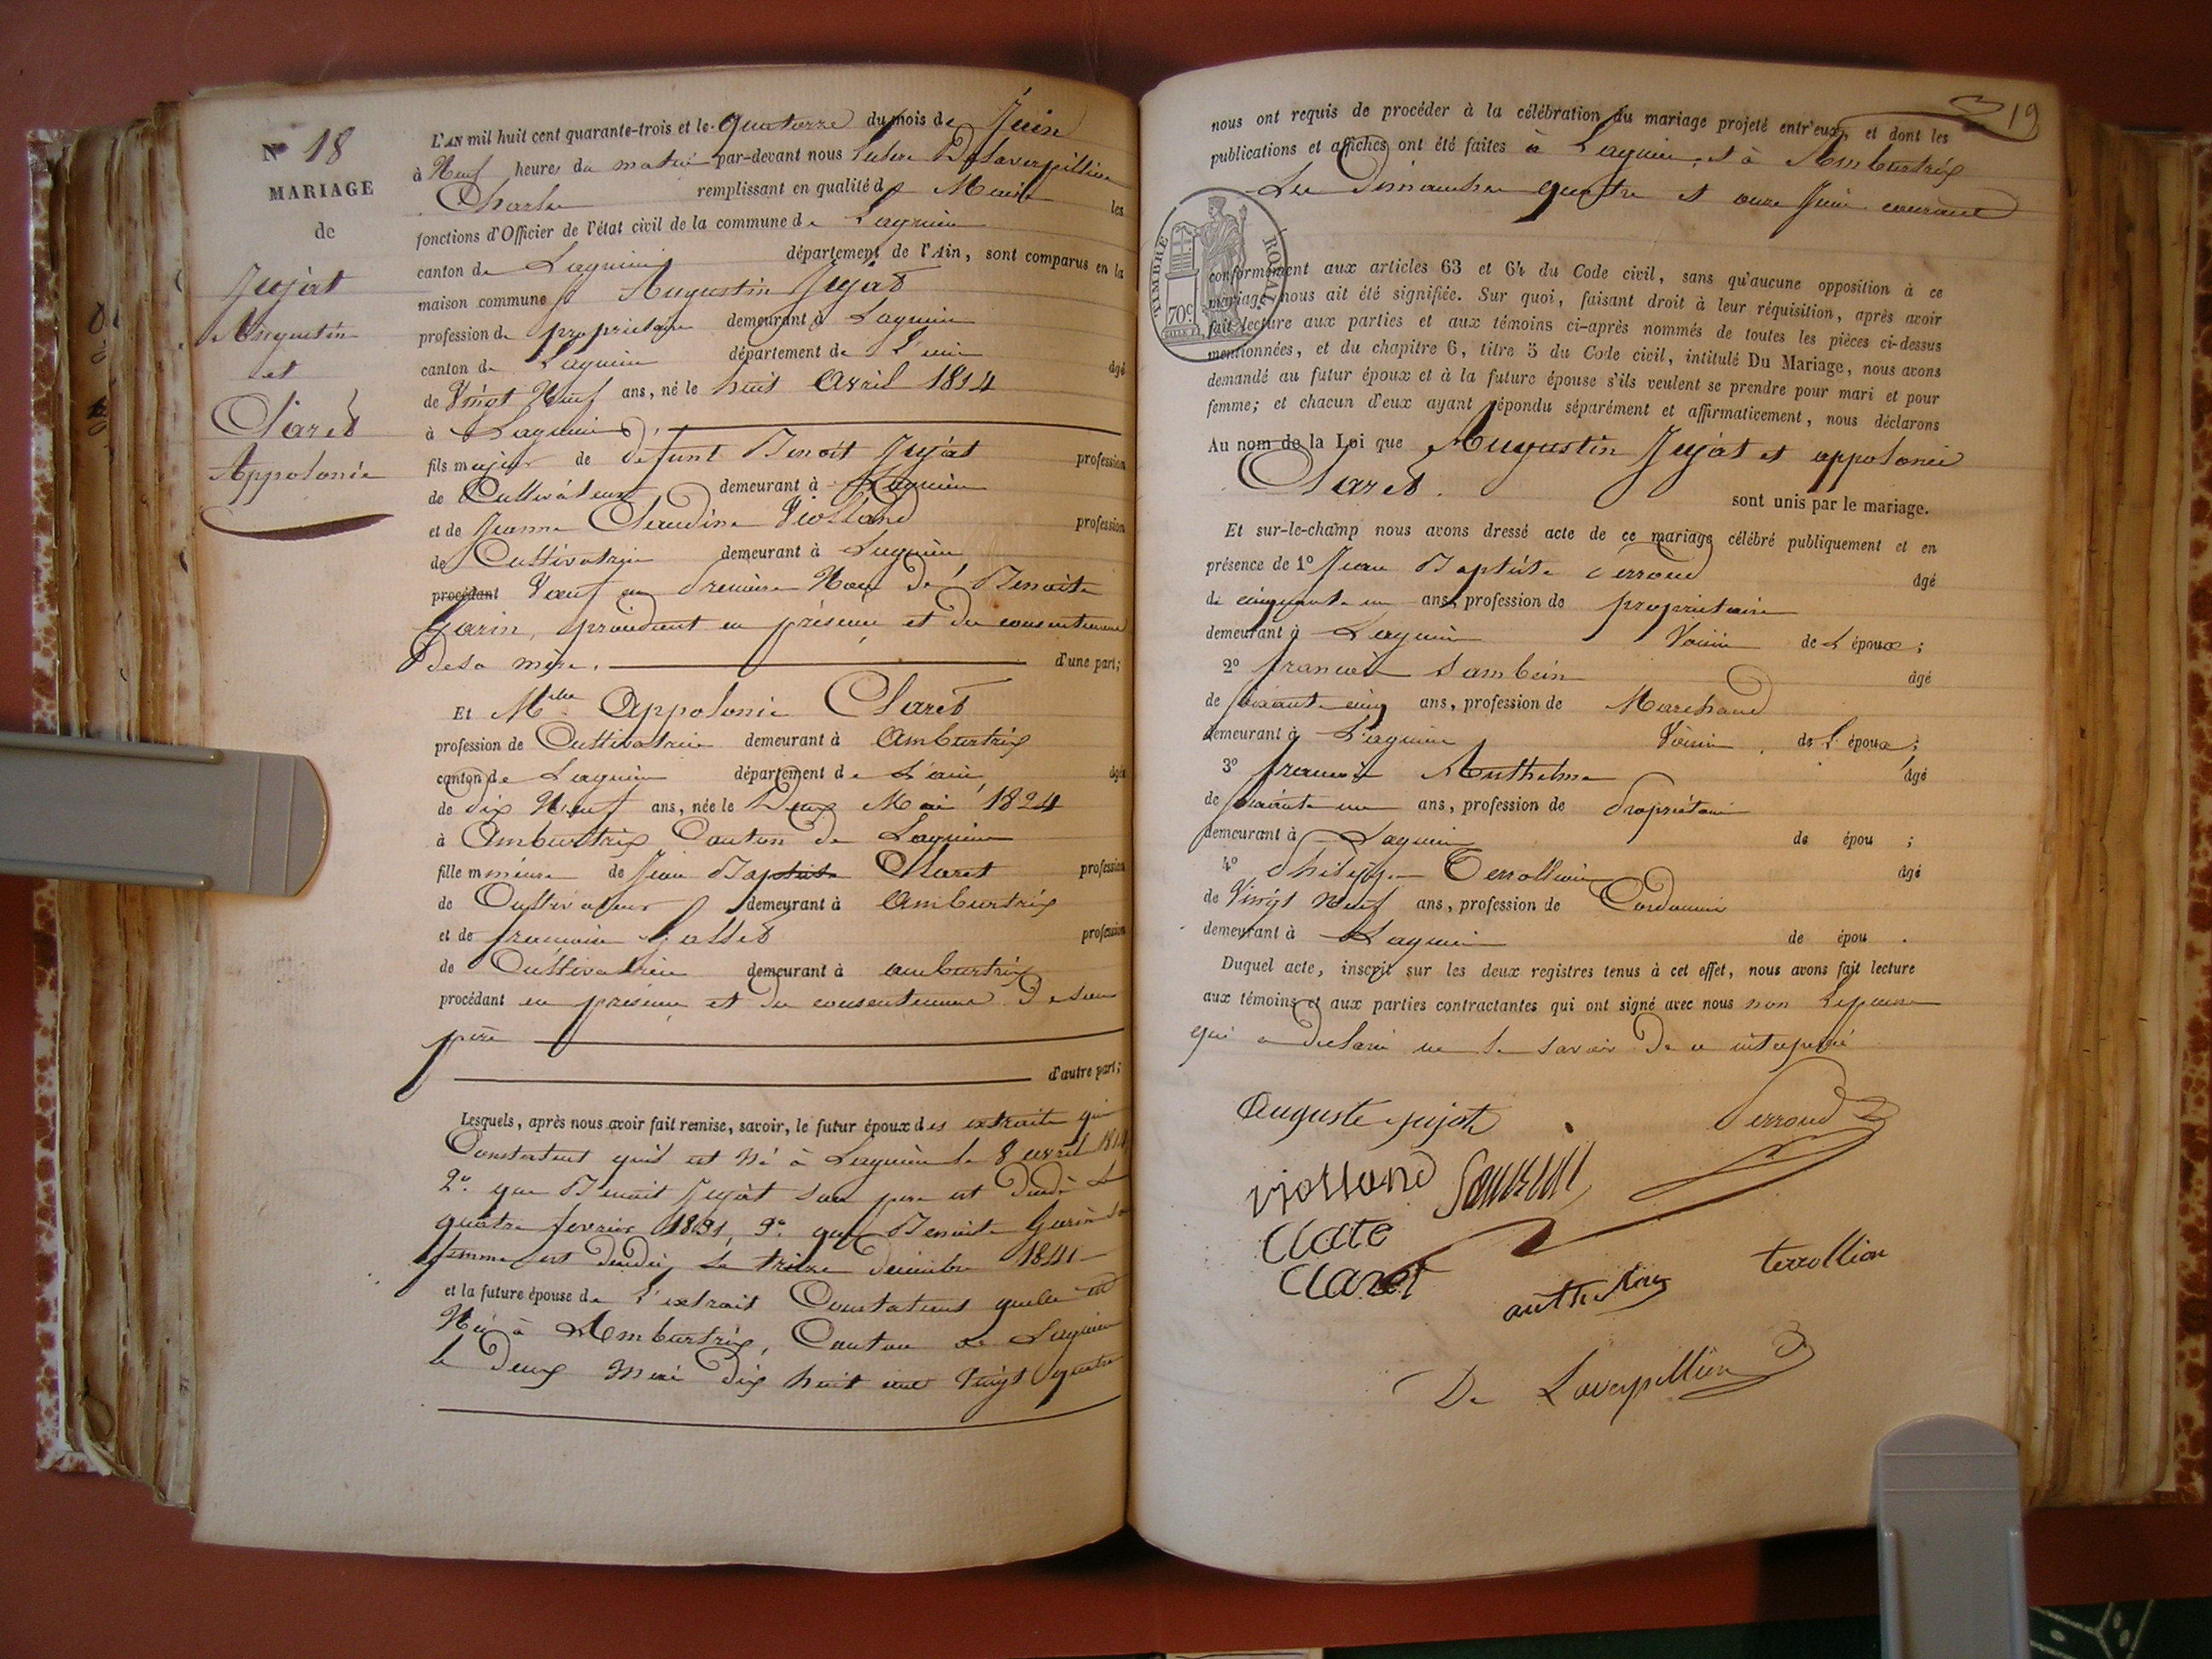 N° 18
MARIAGE
de
Jujat
Augustin
et
Claret
Appolonie
L'AN mil huit cent quarante-trois et le quatorze du mois de Juin
à Neuf heures du matin par-devant nous Delaverpillière
Charles remplissant en qualité de Maire les
fonctions d'Officier de l'état civil de la commune de Lagnieu
canton de Lagnieu département de l'Ain, sont comparus en la
maison commune Augustin Jujat
profession de propriétaire demeurant à Lagnieu
canton de Lagnieu département de L'ain âgé
de Vingt Neuf ans, né le huit Avril 1814
à Lagnieu
fils majeur de défunt Benoit Jujat profession
de Cultivateur demeurant à Lagnieu
et de Jeanne Claudine Violland profession
de Cultivatrice demeurant à Lagnieu
procédant Veuf en Premiere Noce de Benoite
Garin, procédant en présence et du consentement
de sa mère. d'une part;
Et Mlle Appolonie Claret
profession de Cultivatrice demeurant à Ambutrix
canton de Lagnieu département de L'ain âgée
de dix Neuf ans, née le Deux Mai 1824
à Ambutrix Canton de Lagnieu
fille mineure de Jean Baptiste Claret profession
de Cultivateur demeurant à Ambutrix
et de françoise profession
de Cultivatrice demeurant à ambutrix
procédant en présence et du consentement de son
père
d'autre part;
Lesquels, après nous avoir fait remise, savoir, le futur époux des extraits qui
Constatent qu'il est Né à Lagnieu le 8 avril 1814
2° que Benoit Jujat son pere est décédé le
quatre fevrier 1831, 3° que Benoite Garin sa
femme est décédée le treize decembre 1841
et la future épouse de l'extrait Constatant quelle est
Née à Ambutrix, Canton de Lagnieu
le Deux mai dix huit cent Vingt quatre
19
nous ont requis de procéder à la célébration du mariage projeté entr'eux, et dont les
publications et affiches ont été faites à Lagnieu, et à Ambutrix
Les Dimanches quatre et onze Juin courant
TIMBRE ROYAL
70c
conformément aux articles 63 et 64 du Code civil, sans qu'aucune opposition à ce
mariage nous ait été signifiée. Sur quoi, faisant droit à leur réquisition, après avoir
fait lecture aux parties et aux témoins ci-après nommés de toutes les pièces ci-dessus
mentionnées, et du chapitre 6, titre 5 du Code civil, intitulé Du Mariage, nous avons
demandé au futur époux et à la future épouse s'ils veulent se prendre pour mari et pour
femme; et chacun d'eux ayant répondu séparément et affirmativement, nous déclarons
Au nom de la Loi que Augustin Jujat et appolonie
Claret. sont unis par le mariage.
Et sur-le-champ nous avons dressé acte de ce mariage célébré publiquement et en
présence de 1° Jean Baptiste Perroud âgé
de cinquante un ans, profession de propriétaire
demeurant à Lagnieu Voisin de L'époux;
2° françois âgé
de soixante cinq ans, profession de Marchand
demeurant à Lagnieu Voisin de L'époux;
3° françois Anthelme âgé
de ans, profession de Propriétaire
demeurant à Lagnieu de épou ;
4° Philippe Terrollion âgé
de Vingt Neuf ans, profession de Cordonnier
demeurant à Lagnieu de épou .
Duquel acte, inscrit sur les deux registres tenus à cet effet, nous avons fait lecture
aux témoins et aux parties contractantes qui ont signé avec nous non L'epouse
qui a declaré ne le savoir De ce interpellé
Auguste jujat Perroud
violland
Clate
Claret
terrollion
De Laverpillière